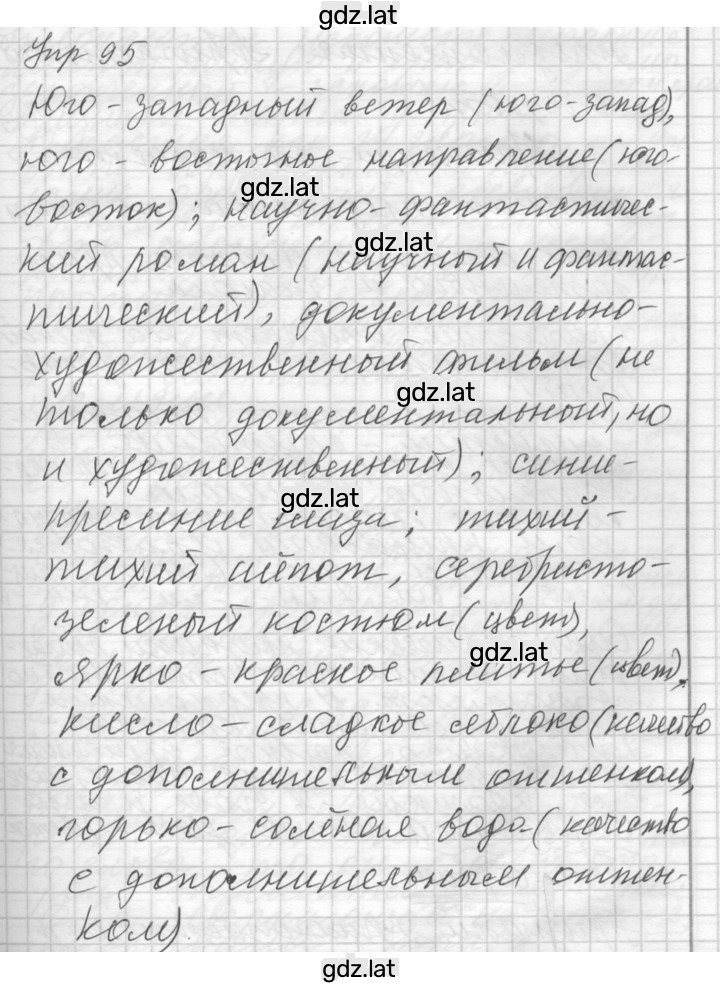 gdz.lat
Упр 95
Юго-западный ветер (юго-запад),
юго-восточное направление (юго-
gdz.lat
восток); научно-фантастичес-
gdz.lat
кий роман (научный и фантас-
тический), документально-
художественный фильм (не
gdz.lat
только документальный, но
и художественный); синие-
gdz.lat
пресиние глаза; тихий-
тихий шёпот, серебристо-
зеленый костюм (цвет),
gdz.lat
ярко-красное платье (цвет),
кисло-сладкое яблоко (качество
с дополнительным оттенком),
горько-солёная вода (качество
с дополнительным оттен-
ком).
gdz.lat